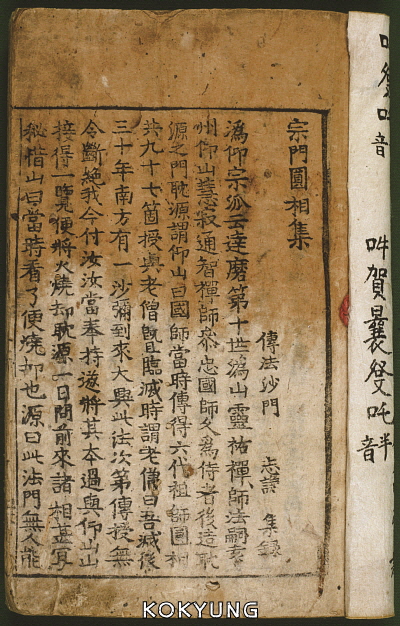 吽賀曩癹吒半音
宗門圓相集
傳法沙門 志謙 集錄
潙仰宗派云達磨第十世潙山靈祐禪師法嗣袁
州仰山慧寂通智禪師參忠國師久爲侍者後造耽
源之門耽源謂仰山曰國師當時傳得六代祖師圓相
共九十七箇授與老僧旣臨滅時謂老僧曰吾滅後
三十年南方有一沙彌到來大興此法次第傳授無
令斷絶我今付汝汝當奉持遂將其本過與仰山山
接得一覽便將火燒却耽源一日問前來諸相甚宜
秘惜山曰當時看了便燒却也源曰此法門無人能
KOKYUNG